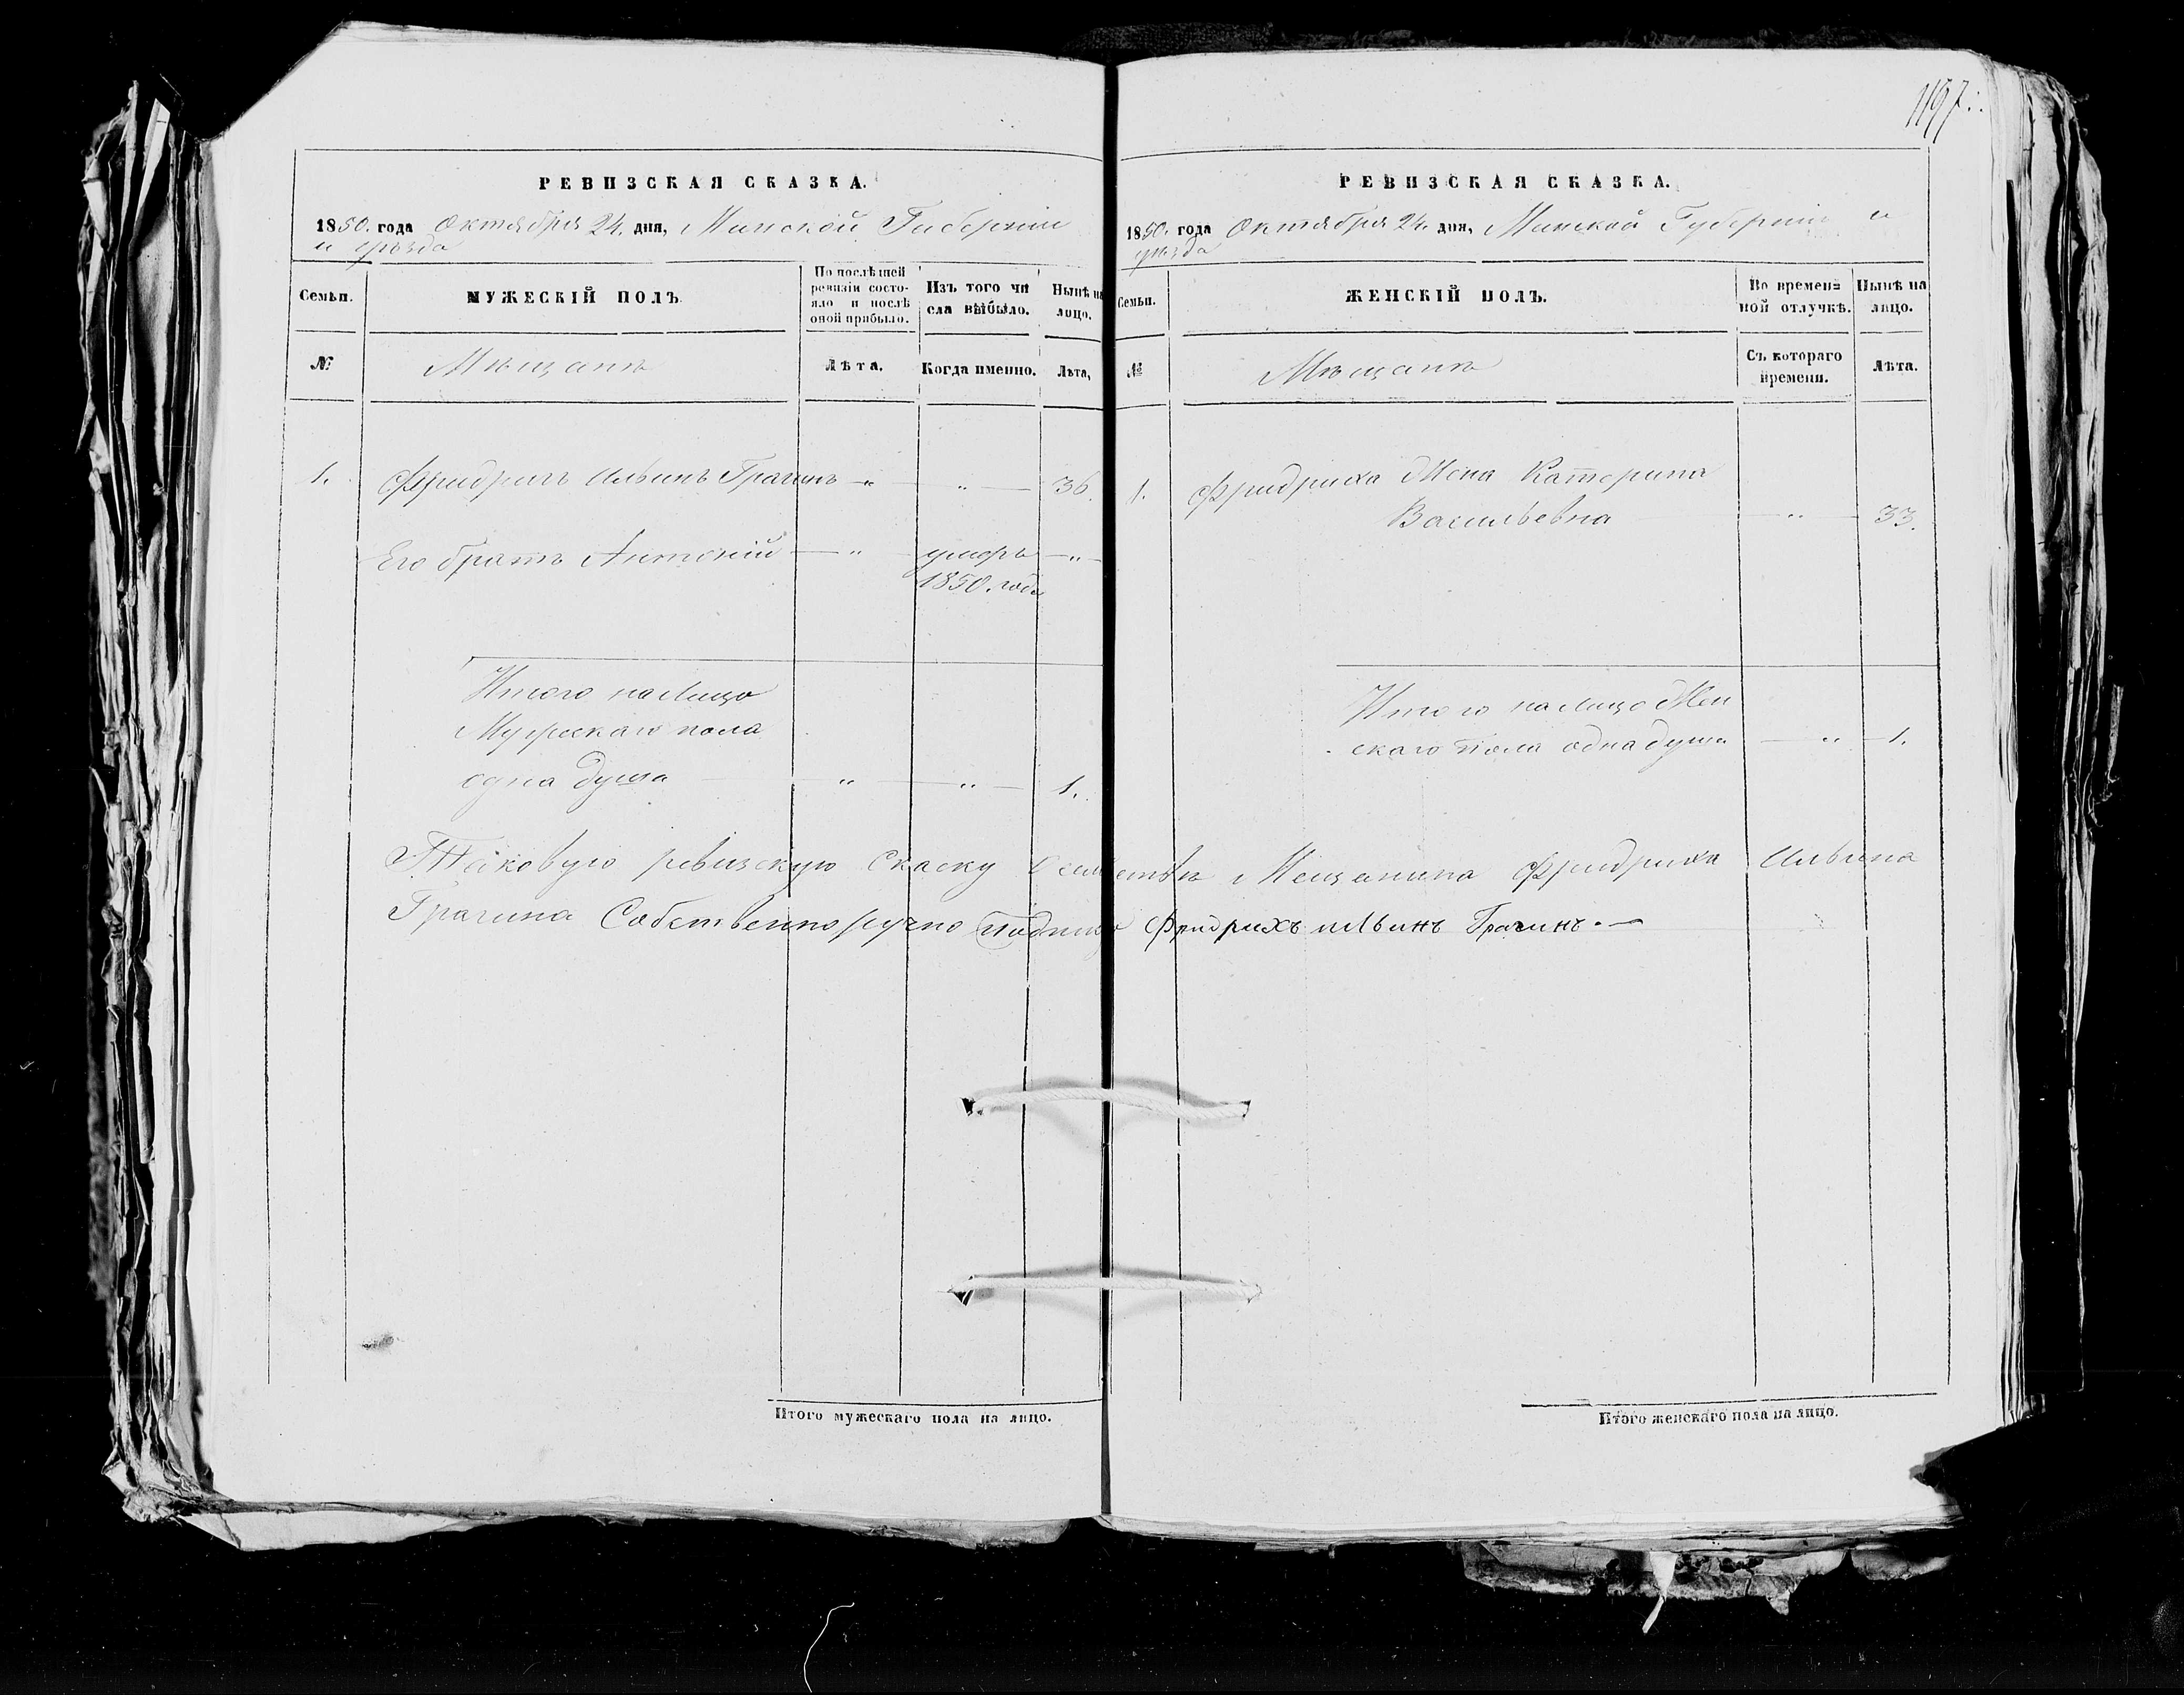 1197.
РЕВИЗСКАЯ СКАЗКА.
1850. года Октября 24. дня, Минской Губерніи
и уѣзда
Семьи.
МУЖЕСКІЙ ПОЛЪ.
По послѣдней
ревизіи состо-
яло и послѣ
оной прибыло.
Изъ того чи
сла выбыло.
Нынѣ на
лицо.
№
Мѣщанъ
Лѣта.
Когда именно.
Лѣта,
1. Фридрихъ Ильинъ Грагинъ — „ — „ — 36.
Его братъ Антоній — „ умеръ — „ —
1850. года
Итого на Лицо
Мужескаго пола
одна душа — „ — „ — 1.
РЕВИЗСКАЯ СКАЗКА.
1850. года Октября 24. дня, Минской Губерніи и
уѣзда
Семьи.
ЖЕНСКІЙ ПОЛЪ.
Во времен=
ной отлучкѣ.
Нынѣ на
лицо.
№
Мѣщанъ
Съ котораго
времени.
Лѣта.
1. Фридриха Жена Катерина
Васильевна — „ — 33.
Итого на лице Жен
скаго пола одна душа — „ — 1.
Таковую ревизскую Скаску о семействѣ Мещанина Фридриха Ильина
Грагина Собственноручно подпишу Фридрихъ ильинъ Грагинъ. —
Итого мужескаго пола на лицо.
Итого женскаго пола на лицо.